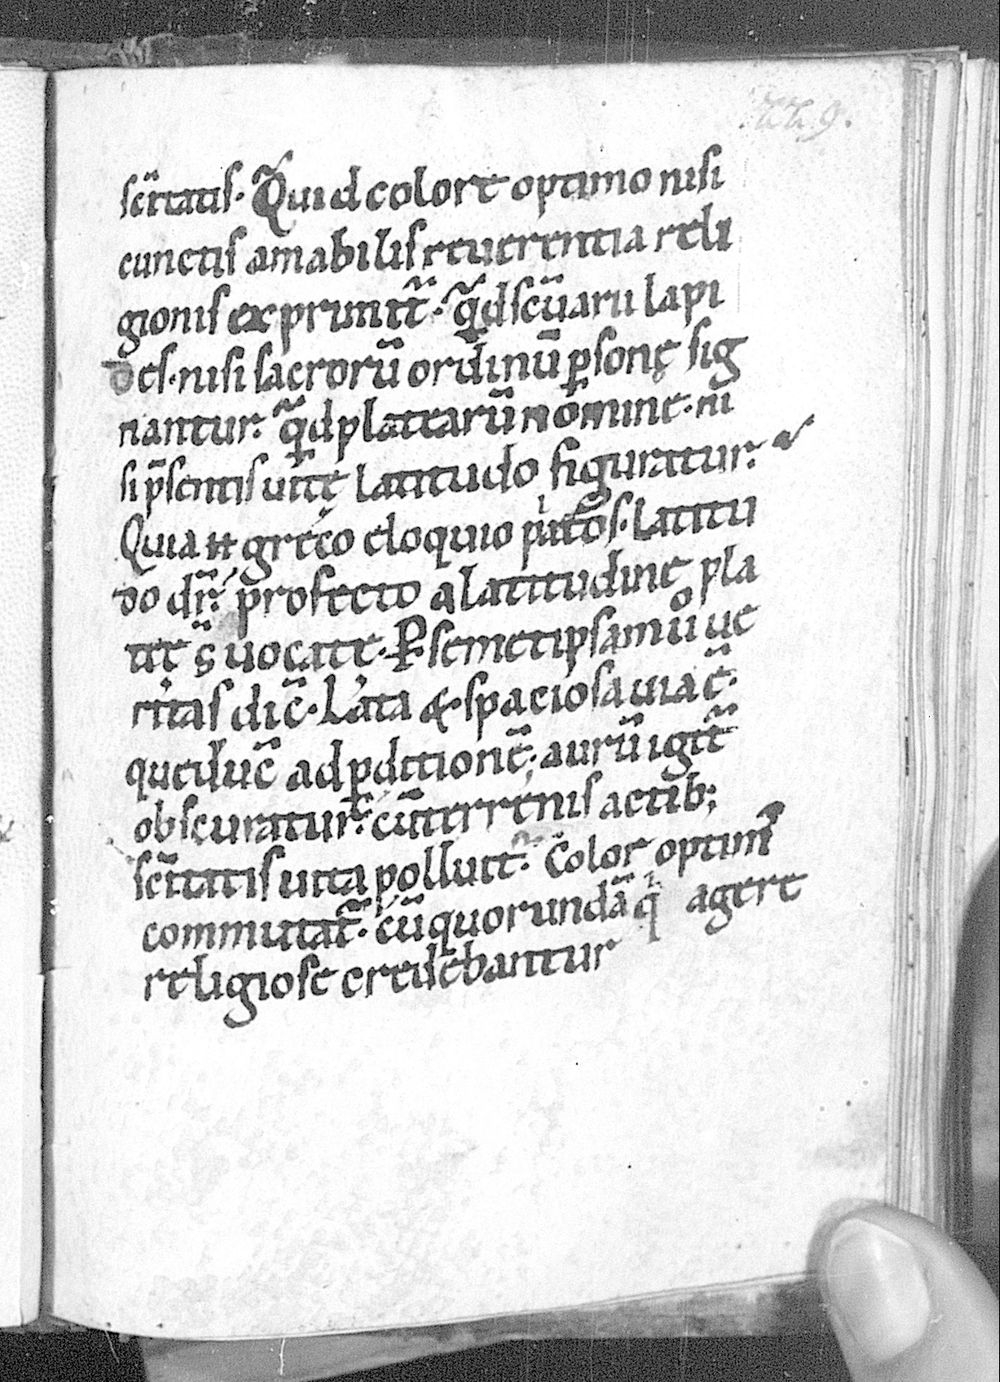 sc̄itatis. Quid colore optimo nisi
cunctis amabilis reuerentia reli
gionis exprimit̃. Qͥd scũaru lapi
des. nisi sacrorũ ordinũ ꝑsonę sig
nantur. qͥd platearũ nomine. ni
si p̄sentis uitę latitudo figuratur.
Quia greco eloquio latitu
do dr̃. profecto a latitudine pla
teę s̃ uocate. Per semetipsam ũ ue
ritas dic̃. Lata & spaciosa uia ẽ.
que duc̃ ad ꝑditionẽ; aurũ igit̃
obscuratur. cũ terrenis actib;
sc̄itatis uita polluit̃. Color optim᷒
commutat̃. cũ quorundã qͥ agere
religiose credebantur